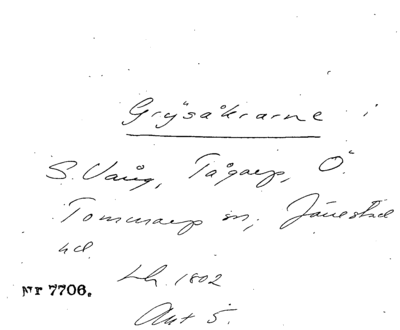 Grysåkrarne i
S. Vång, Tågarp, Ö.
Tommarp sn, Järrestad
hd.
Lh. 1802
Nr 7706.
Akt 5.